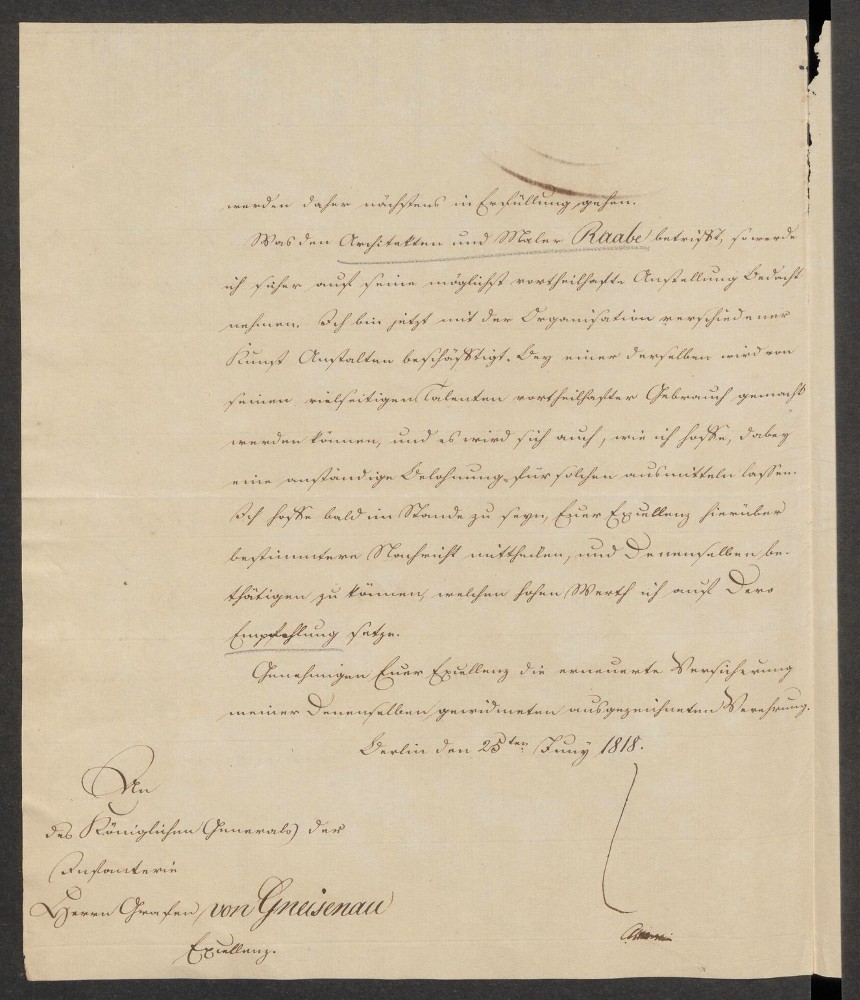 werden daher nächstens in Erfüllung gehen.
Was den Architekten und Maler Raabe betrifft, so werde
ich sicher auf seine möglichst vortheilhafte Anstellung Bedacht
nehmen. Ich bin jetzt mit der Organisation verschiedener
Kunst Anstalten beschäftigt. Bey einer derselben wird von
seinen vielseitigen Talenten vortheilhafter Gebrauch gemacht
werden können, und es wird sich auch, wie ich hoffe, dabey
eine anständige Belohnung für solchen ausmitteln lassen.
Ich hoffe bald im Stande zu seyn, Euer Excellenz hierüber
bestimmtere Nachricht mittheilen, und Denenselben be-
thätigen zu können, welchen hohen Werth ich auf Dero
Empfehlung setze.
Genehmigen Euer Excellenz die erneuerte Versicherung
meiner Denenselben gewidmeten ausgezeichneten Verehrung.
Berlin den 25ten Juny 1818.
An
des Königlichen Generals der
Infanterie
Herrn Grafen von Gneisenau
Excellenz.